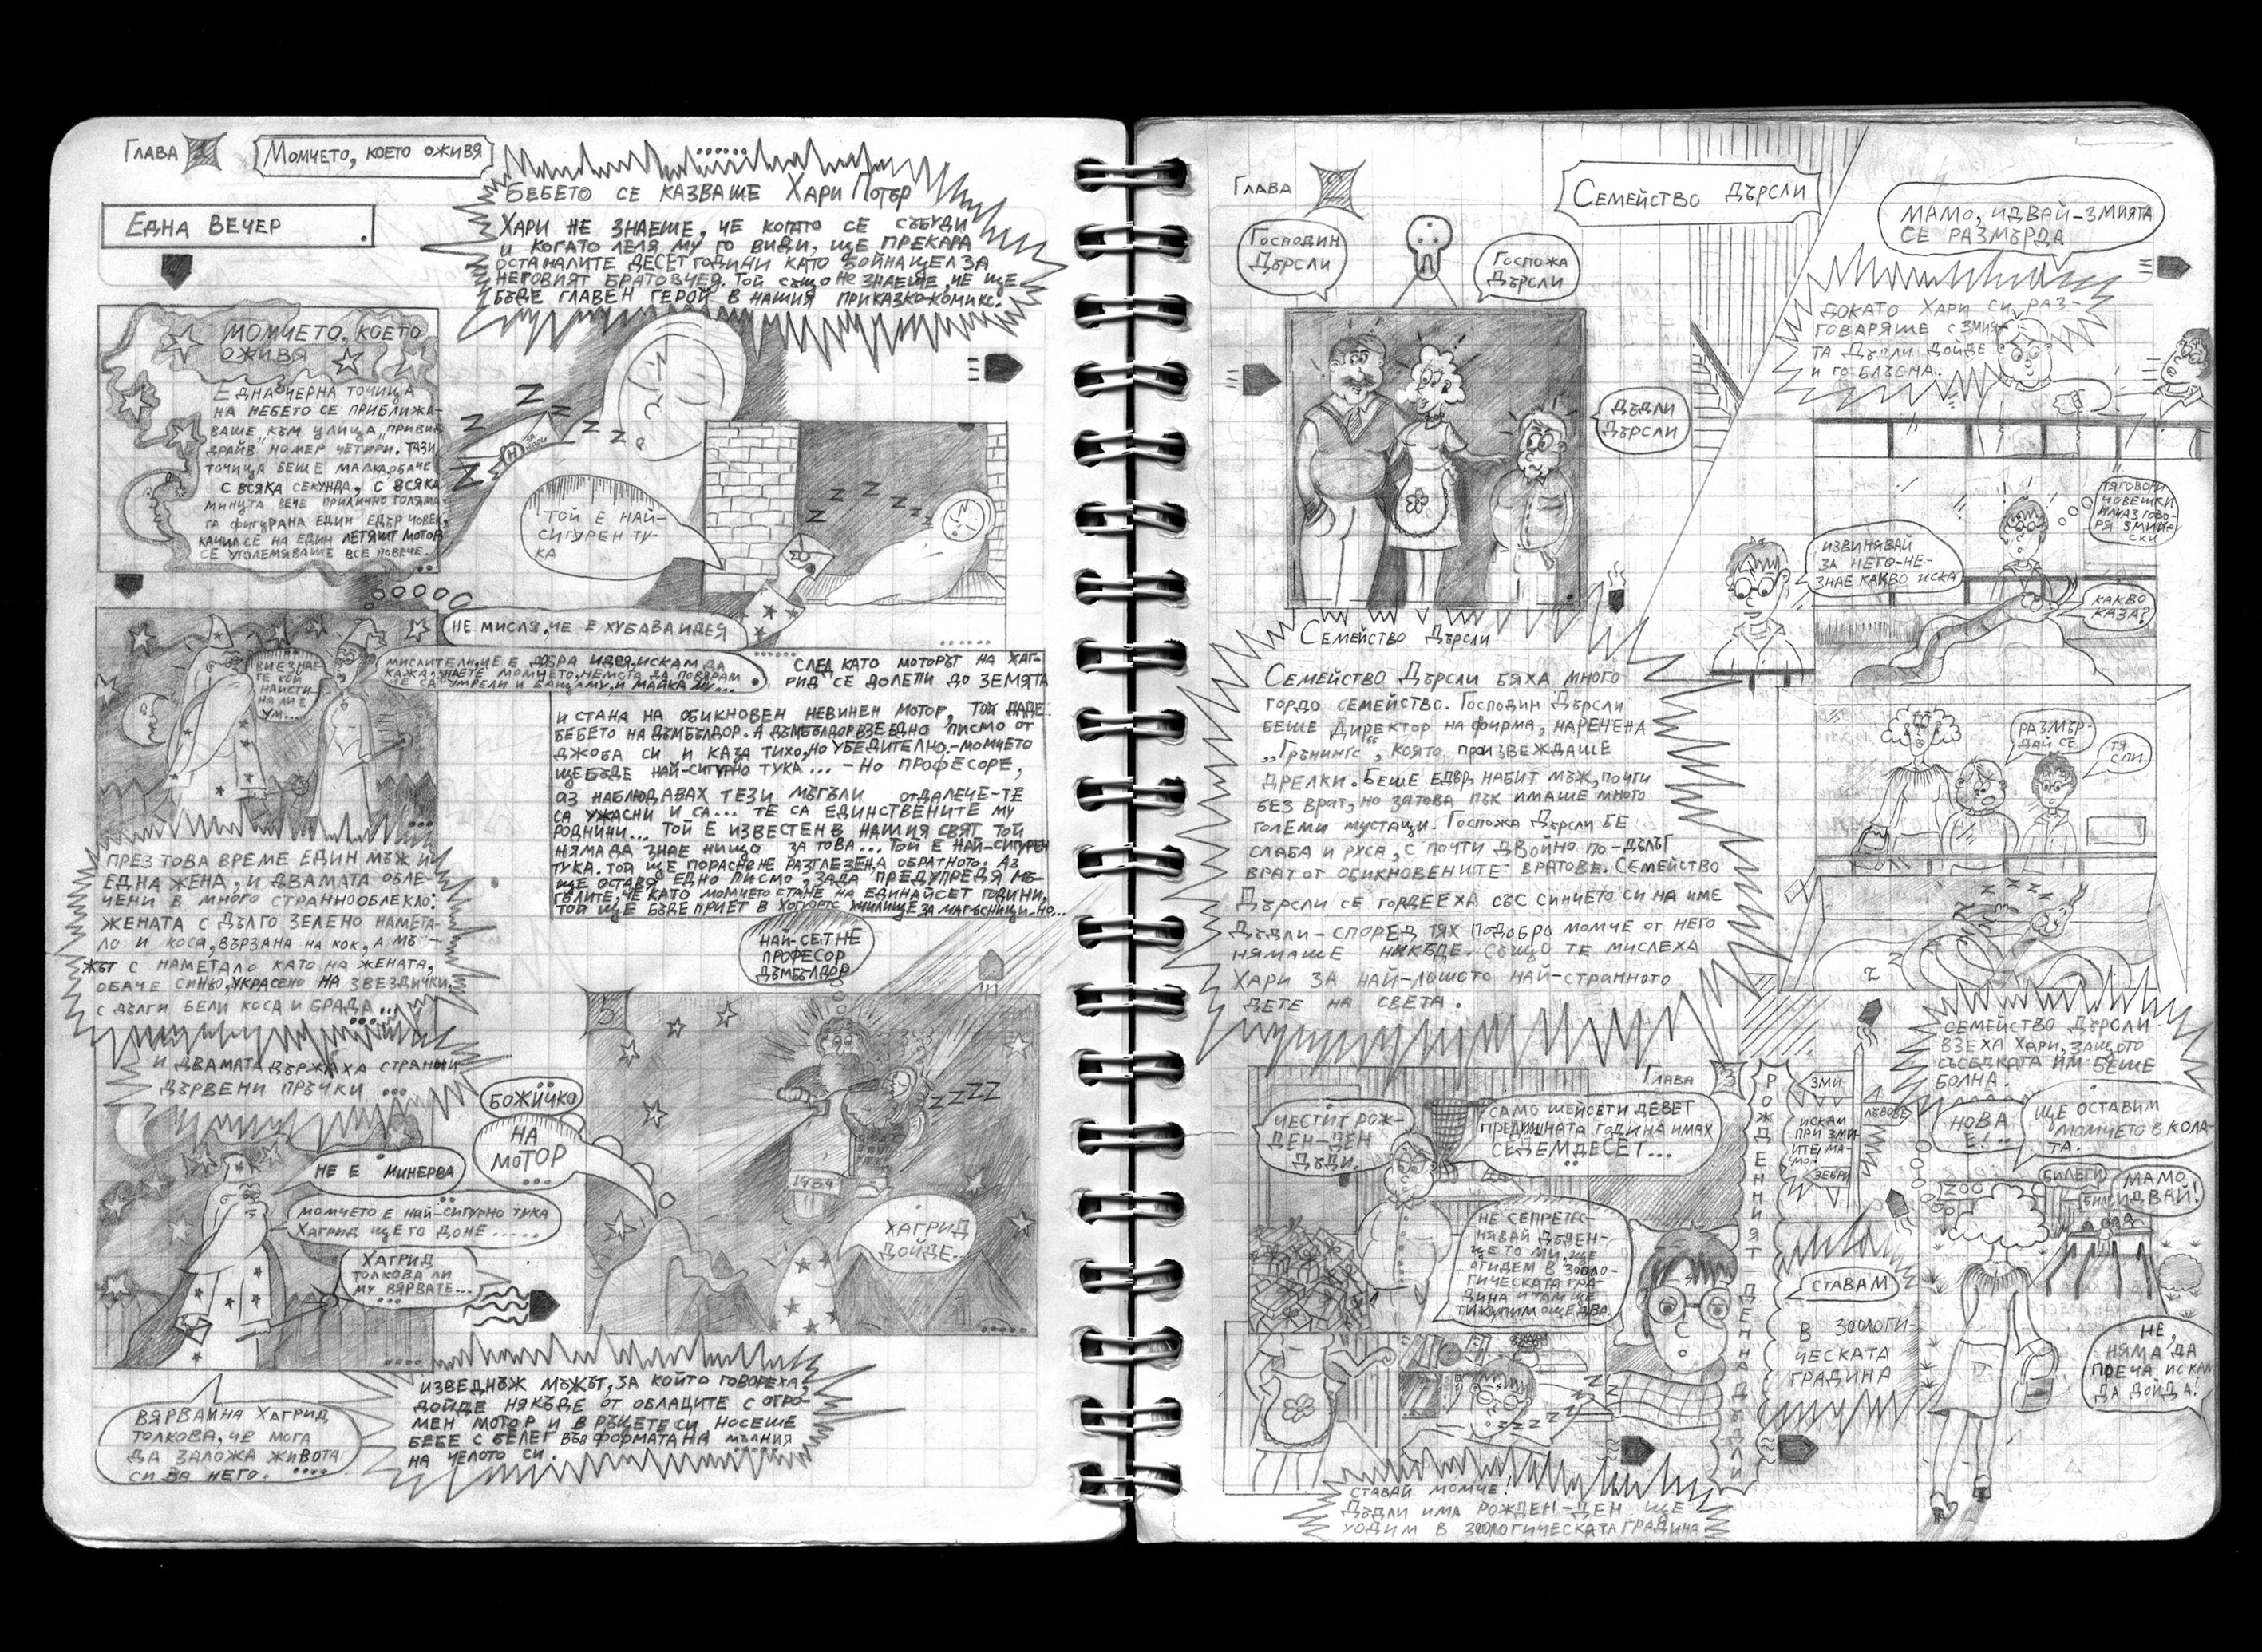 Глава 1
Момчето, което оживя
Една вечер
Момчето, което
оживя
Една черна точица
на небето се приближа-
ваше към улица „Привит
драйв" номер четири. Тази
точица беше малка, обаче
с всяка секунда, с всяка
минута вече прилично голяма-
та фигура на един едър човек,
качил се на един летящт мотор
се уголемяваше все повече.
Вие знае-
те кой
наисти-
на ли е
ум...
Не мисля, че е хубава идея
През това време един мъж и
една жена, и двамата обле-
чени в много странно облекло:
жената с дълго зелено намета-
ло и коса, вързана на кок, а мъ-
жът с наметало като на жената,
обаче синьо, украсено на звездички,
с дълги бели коса и брада...
и двамата държаха странни
дървени пръчки ...
Не е Минерва
Момчето е най-сигурно тука
Хагрид ще го доне .....
Хагрид
толкова ли
му вярвате...
Вярвам на Хагрид
толкова, че мога
да заложа живота
си за него.
Бебето се казваше Хари Потър
Хари не знаеше, че когато се събуди
и когато леля му го види, ще прекара
останалите десет години като бойна цел за
неговият братовчед. Той също не знаеше, че ще
бъде главен герой в нашия приказко-комикс.
Z Z Z
Z Z Z
Той е най-
сигурен ту-
ка
Z Z Z Z
че е добра идея, искам да
кажа, знаете момчето, немога да повярам
че са умрели и баща му, и майка му...
След като моторът на Хаг-
рид се долепи до земята
и стана на обикновен невинен мотор, той даде
бебето на Дъмбълдор. А Дъмбълдор взе едно писмо от
джоба си и каза тихо, но убедително.-момчето
ще бъде най-сигурно тука... - Но професоре,
аз наблюдавах тези мъгъли отдалече-те
са ужасни и са... те са единствените му
роднини... Той е известен в нашия свят той
няма да знае нищо за това... Той е най-сигурен
тука. Той ще порасне не разглезен а обратното. Аз
ще оставя едно писмо, за да предупредя мъ-
гълите, че като момчето стане на единайсет години,
той ще бъде приет в Хогуортс училище за магьосници. Но...
Най-сетне
професор
Дъмбълдор
Божичко
На
мотор
...
ZZZZ
1989
Хагрид
дойде.
Изведнъж мъжът, за който говореха,
дойде някъде от облаците с огро-
мен мотор и в ръцете си носеше
бебе с белег във формата на мълния
на челото си.
Глава
Семейство Дърсли
Господин
Дърсли
Госпожа
Дърсли
Дъдли
Дърсли
Семейство Дърсли
Семейство Дърсли бяха много
гордо семейство. Господин Дърсли
беше директор на фирма, наренена
„Грънингс", която произвеждаше
дрелки. Беше едър, набит мъж, почти
без врат, но затова пък имаше много
големи мустаци. Госпожа Дърсли бе
слаба и руса, с почти двойно по-дълъг
врат от обикновените вратове. Семейство
Дърсли се гордееха със синчето си на име
Дъдли-според тях подобро момче от него
нямаше никъде. Също те мислеха
Хари за най-лошото най-странното
дете на света.
Глава 3
Рожденният ден на Дъдли
Честит рож-
ден-ден
Дъди.
Само шейсти девет
предишната година имах
седемдесет...
Не се притес-
нявай Дъден-
це то ми, ще
отидем в зооло-
гическата гра-
дина и там ще
ти купим още два.
ZZZZ
Ставай момче!
Дъдли има рожден-ден ще
ходим в зоологическата градина
Ставам
В зоологи-
ческата
градина
Зми
Искам
при зми-
ите, ма-
мо
Зебри
Лъвове
Семейство Дърсли
взеха Хари, защото
съседката им беше
болна.
Нова
е!..
Ще оставим
момчето в кола-
та.
ZOO
Билети
Мамо,
идвай!
Не,
няма да
преча. Искам
да дойда!
Мамо, идвай-змията
се размърда
Докато Хари си раз-
говаряше с змия-
та Дъдли дойде
и го блъсна.
Тя говори
човешки
или аз гово-
ря змийс-
ски
Извинявай
за него-не-
знае какво иска
Какво
каза?
Размър-
дай се
Тя
спи
Z Z Z Z